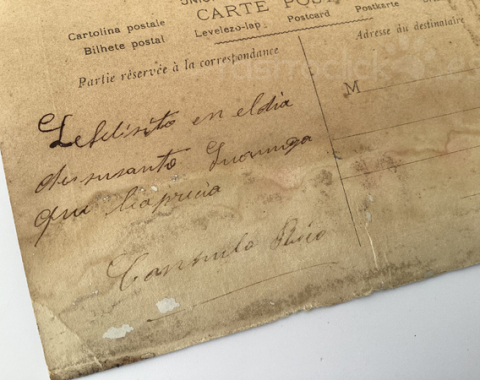 CARTE POST
Cartolina postale
Levelezo-lap Postcard Postkarte
Bilhete postal
Partie réservée à la correspondance
Adresse du destinataire
M
Lefelisito en eldia
de susanto
que leaprecia
Consuelo Rico